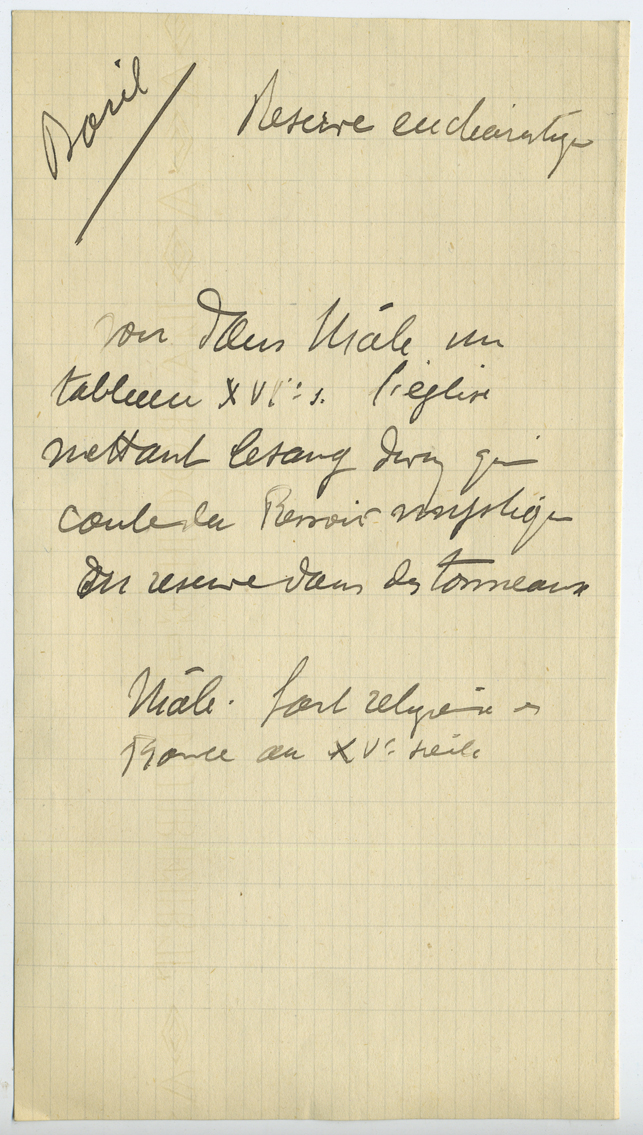 Baril
Reserve eucharistique
voir dans Mâle un
tableau XVIe s. l'église
mettant le sang divin qui
coule du Pressoir mystique
en reserve dans des tonneaux
Mâle. l'art religieux en
France au XVe siècle